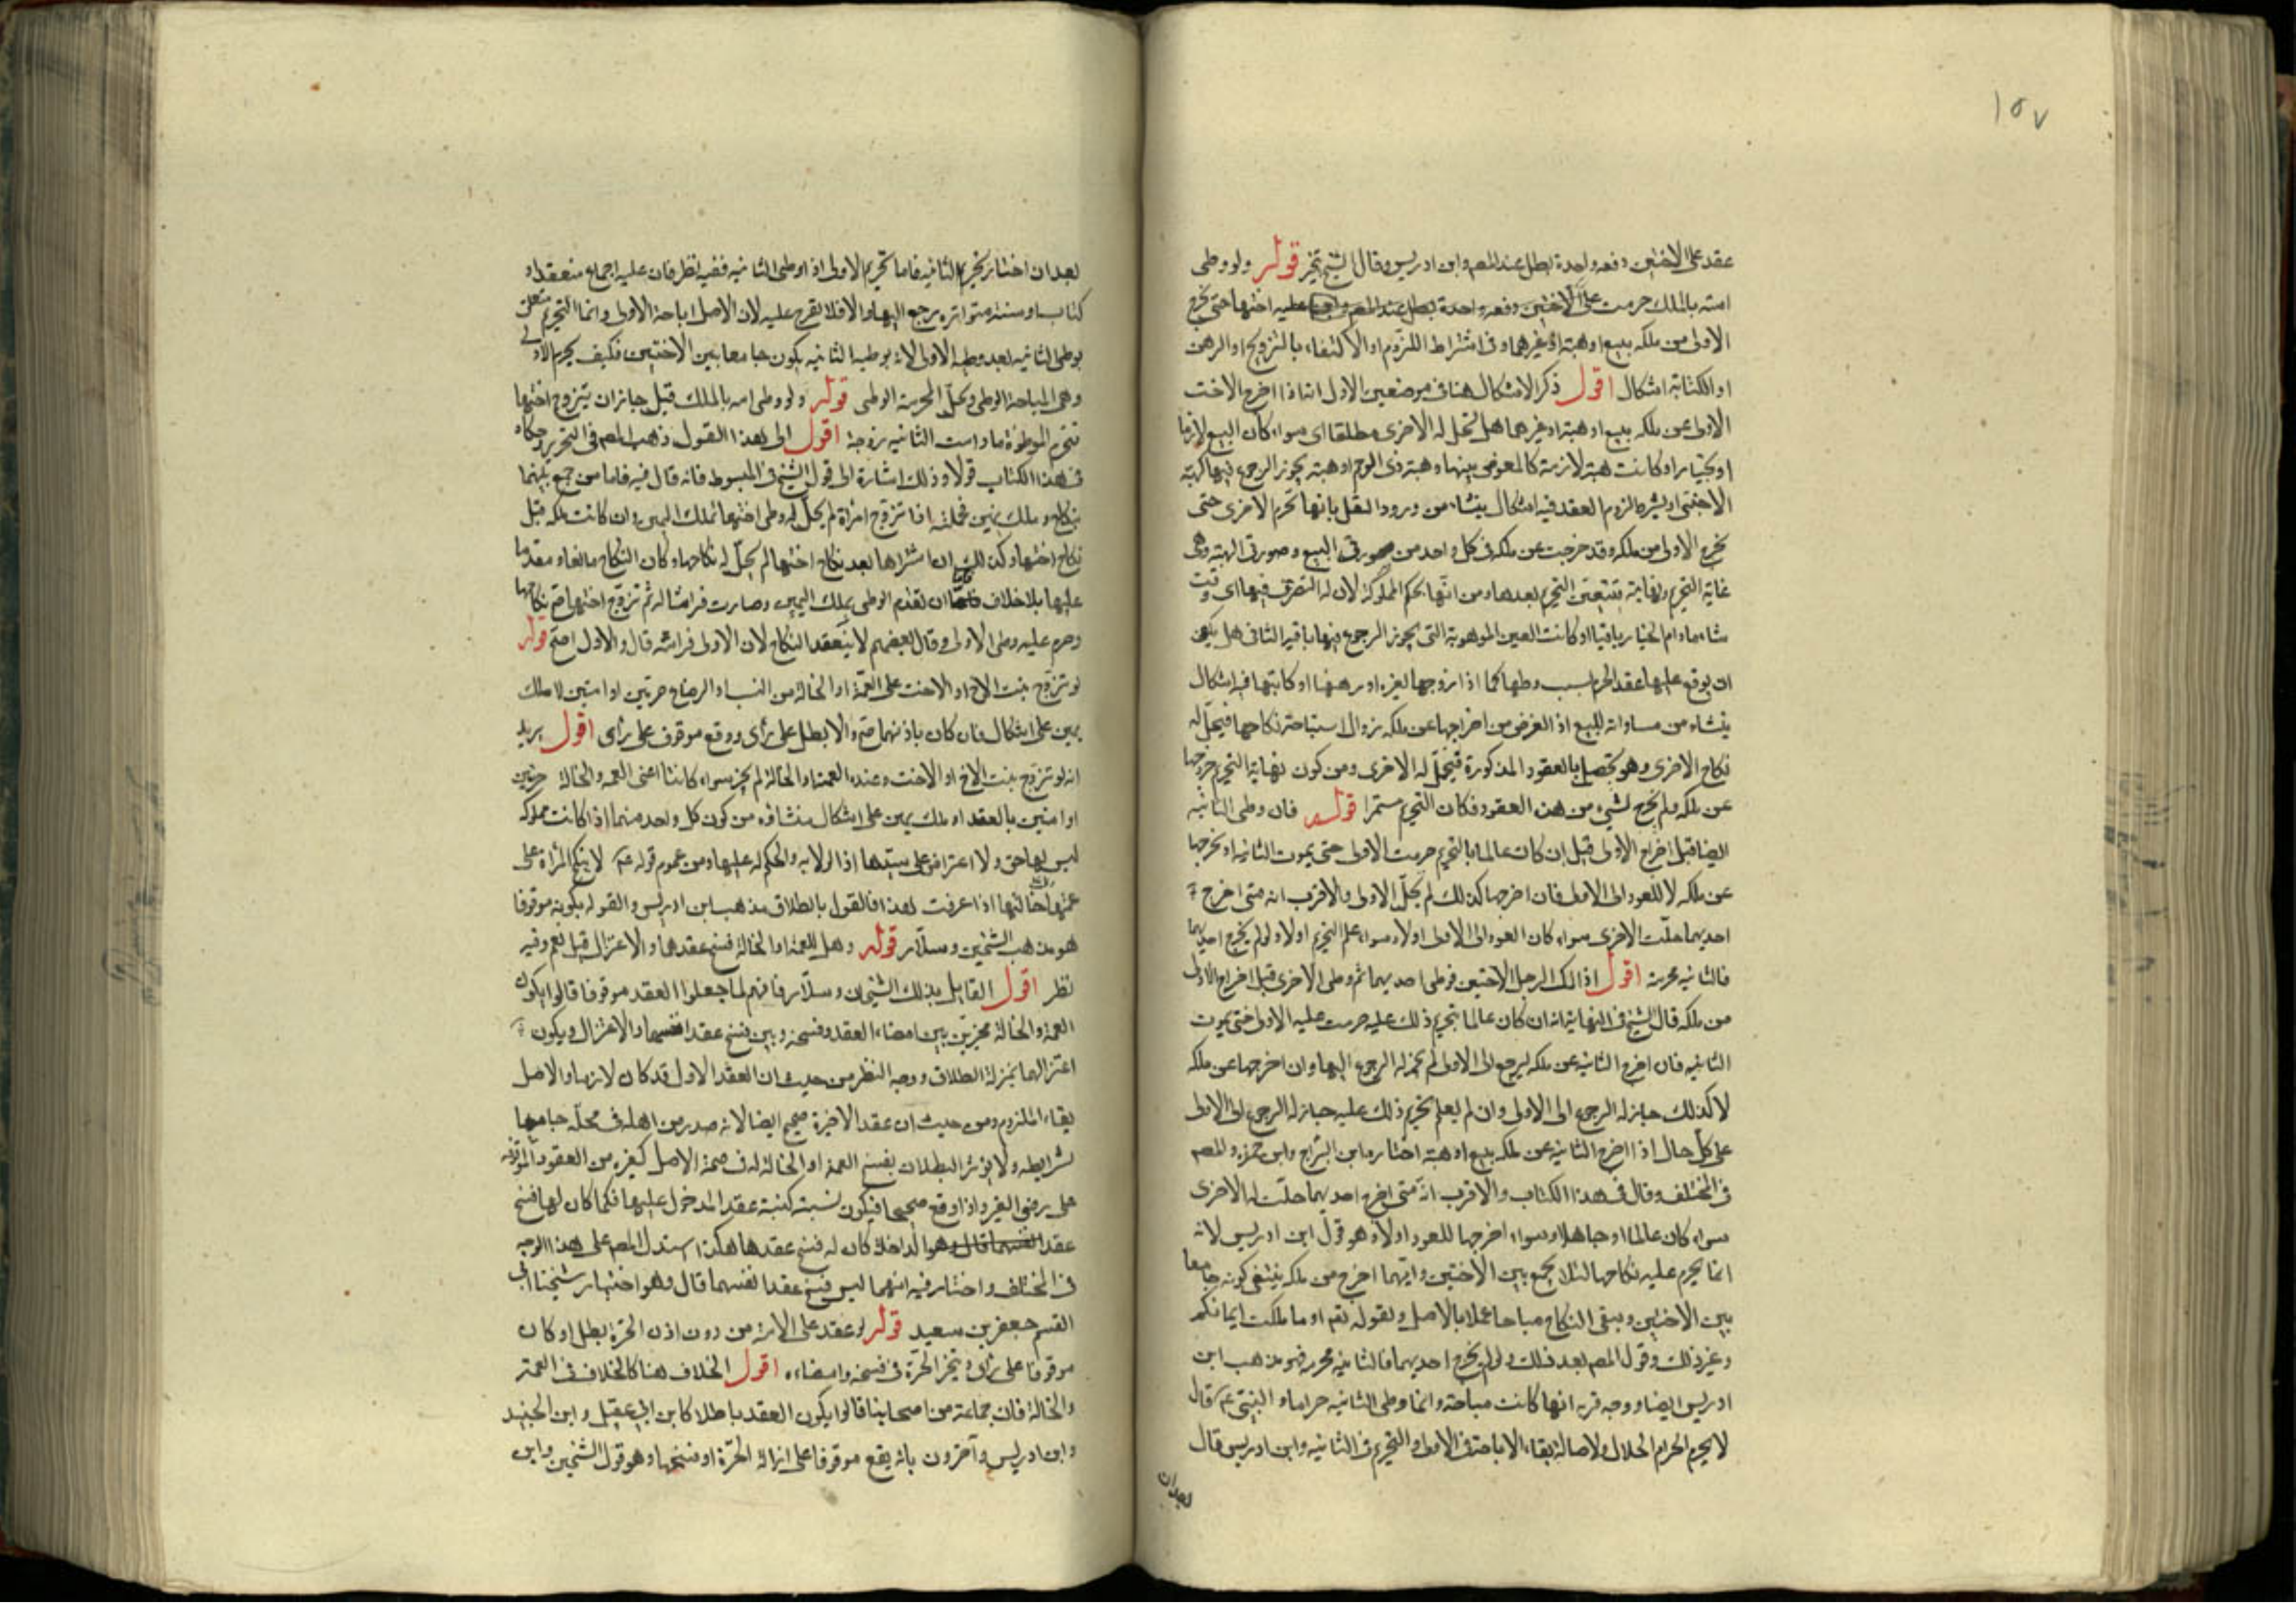 ١٥٧
عقد على الاختين دفعه واحدة بطل عند المصر وابن ادريس وقال الشيخ تخير قوله ولو وطى
امته بالملك حرمت على الاختين دفعه واحدة بطل عند المصر عليه اختها حتى تخرج
الاولى من ملكه ببيع او هبة او غيرهما وفى اشتراط اللزوم او الاكتفاء بالتزويج او الرهن
او الكتابة اشكال اقول ذكر الاشكال هنا فى موضعين الاول انه اذا اخرج الاخت
الاولى عن ملكه ببيع او هبة او غيرهما هل تحل له الاخرى مطلقا اى سواء كان البيع لازما
او بخيار او كانت هبة لازمة كالمعوض عنها وهبة ذى الرحم او هبة يجوز الرجوع فيها كهبة
الاجنبى او يشترط لزوم العقد فيه اشكال ينشاء من ورود النقل بانها تحرم الاخرى حتى
تخرج الاولى من ملكه وقد خرجت عن ملكه فى كل واحد من صورتى البيع وصورتى الهبة وهى
غاية التحريم ونهايته فينتفى التحريم بعدها ومن انها بحكم المملوكة لان له التصرف فيها اى وقت
شاء ما دام الخيار باقيا او كانت العين الموهوبة التى يجوز الرجوع فيها باقية الثانى هل يكفى
ان يوقع عليها عقد الحرم بسبب وطها كما اذا زوجها لغيره او رهنها او كاتبها فيه اشكال
ينشاء من مساواته للبيع اذ الغرض من اخراجها عن ملكه زوال استباحة نكاحها فيحل له
نكاح الاخرى وهو يحصل بالعقود المذكورة فيحل له الاخرى ومن كون نهاية التحريم خروجها
عن ملكه ولم تخرج بشىء من هذه العقود فكان التحريم مستمرا قوله فان وطى الثانيه
ايضا قبل اخراج الاولى قيل ان كان عالما بالتحريم حرمت الاولى حتى يموت الثانيه او يخرجها
عن ملكه لا للعود الى الاولى فان اخرجها كذلك لم تحل الاولى والاقرب انه متى اخرج
احديهما حلت الاخرى سواء كان العود الى الاولى اولا وسواء علم التحريم اولا ولو لم يخرج احديهما
فالثانيه محرمة اقول اذا ملك الرجل الاختين فوطى احديهما ثم وطى الاخرى قبل اخراج الاولى
من ملكه قال الشيخ فى النهاية انه ان كان عالما بتحريم ذلك عليه حرمت عليه الاولى حتى يموت
الثانيه فان اخرج الثانيه عن ملكه ليرجع الى الاولى لم يجز له الرجوع اليها وان اخرجها عن ملكه
لا كذلك جاز له الرجوع الى الاولى وان لم يعلم بتحريم ذلك عليه جاز له الرجوع الى الاولى
على كل حال اذا اخرج الثانيه عن ملكه ببيع او هبة اختاره ابن البراج وابن حمزه والمصر
فى المختلف وقال فى هذا الكتاب والاقرب انه متى اخرج احديهما حلت له الاخرى
سواء كان عالما او جاهلا وسواء اخرجها للعود اولا وهو قول ابن ادريس لانه
انما يحرم عليه نكاحها لئلا يجمع بين الاختين وايتهما اخرج من ملكه ينتفى كونه جامعا
بين الاختين ويبقى النكاح مباحا عملا بالاصل ولقوله تعم او ما ملكت ايمانكم
وغير ذلك وقول المصر بعد ذلك ولو لم يخرج احديهما فالثانيه محرمه فهو مذهب ابن
ادريس ايضا ووجه قربه انها كانت مباحة وانما وطى الثانيه حراما والنبى عم قال
لا يحرم الحرام الحلال ولاصالة بقاء الاباحة فى الاولى والتحريم فى الثانيه وابن ادريس قال
بعد ان
بعد ان اختار تحريم الثانيه فاما تحريم الاولى اذا وطى الثانيه ففيه نظر فان عليه اجماع منعقد او
كتاب او سنة متواتره يرجع اليها والا فلا يقرح عليه لان الاصل اباحة الاولى وانما التحريم متعلق
بوطى الثانيه بعد وطيه الاولى لانه بوطيه الثانيه يكون جامعا بين الاختين فكيف يحرم الاولى
وهى المباحة الوطى وتحل المحرمة الوطى قوله ولو وطى امه بالملك قيل جاز ان يتزوج اختها
فتحرم الموطوءة ما دامت الثانيه زوجة اقول الى هذا القول ذهب المصر فى التحرير وحكاه
فى هذا الكتاب قولا وذلك اشارة الى قول الشيخ فى المبسوط فانه قال فيه فاما من جمع بينهما
بنكاح وملك يمين فجملته اذا تزوج امرأة لم يحل له وطى اختها بملك اليمين وان كانت ملكه قبل
نكاح اختها وكذلك ان اشتراها بعد نكاح اختها لم يحل له نكاحها وكان النكاح مانعا ومقدما
عليها بلا خلاف فاما ان تقدم الوطى بملك اليمين وصارت فراشا له ثم تزوج اختها صح نكاحها
وحرم عليه وطى الاولى وقال بعضهم لا ينعقد النكاح لان الاولى فراشه قال والاول اصح قوله
لو تزوج بنت الاخ او الاخت على العمة او الخالة من النسب او الرضاع حرتين او امتين لا ملك
يمين على اشكال فان كان باذنهما صح والا بطل على رأى ووقع موقوف على رأى اقول يريد
انه لو تزوج بنت الاخ او الاخت وعنده العمة او الخالة لم يجز سواء كانتا اعنى العمه والخالة حرتين
او امتين بالعقد او ملك يمين على اشكال منشاؤه من كون كل واحد منهما اذا كانت مملوكه
ليس لها حق ولا اعتراض على سيدها اذ الولايه والحكم له عليها ومن عموم قوله عم لا تنكح المرأة على
عمتها وخالتها اذا عرفت هذا فالقول بالطلاق مذهب ابن ادريس والقول بكونه موقوفا
هو مذهب الشيخين وسلار قوله وهل للعمة او الخالة فسخ عقدهما والاعتزال قيل نعم وفيه
نظر اقول القايل بذلك الشيخان وسلار فانهم لما جعلوا العقد موقوفا قالوا يكون
العمة والخالة مخيرتين بين امضاء العقد وفسخه وبين فسخ عقد انفسهما والاعتزال ويكون
اعتزالهما بمنزلة الطلاق ووجه النظر من حيث ان العقد الاول قد كان لازما والاصل
بقاء اللزوم ومن حيث ان عقد الاخيرة صحيح ايضا لانه صدر من اهله فى محله جامعا
لشرايطه ولا يؤثر البطلان بفسخ العمة او الخالة له فى صحة الاصل كغيره من العقود الموقوفه
على رضى الغير واذا وقع صحيحا فيكون نسبته كنسبة عقد المدخول عليها فكما كان لها فسخ
عقد الداخلة كان له فسخ عقدها هكذا استدل المصر على هذا الوجه
فى المختلف واختار فيه انهما ليس فسخ عقد انفسهما قال وهو اختيار شيخنا ابى
القسم جعفر بن سعيد قوله لو عقد على الامة من دون اذن الحرة بطل او كان
موقوفا على رأى ويتخير الحرة فى فسخه وامضاءه اقول الخلاف هنا كالخلاف فى العمة
والخالة فان جماعة من اصحابنا قالوا يكون العقد باطلا كابن ابى عقيل وابن الجنيد
وابن ادريس وآخرون بانه يقع موقوفا على الحرة او فسخها وهو قول الشيخين وابن